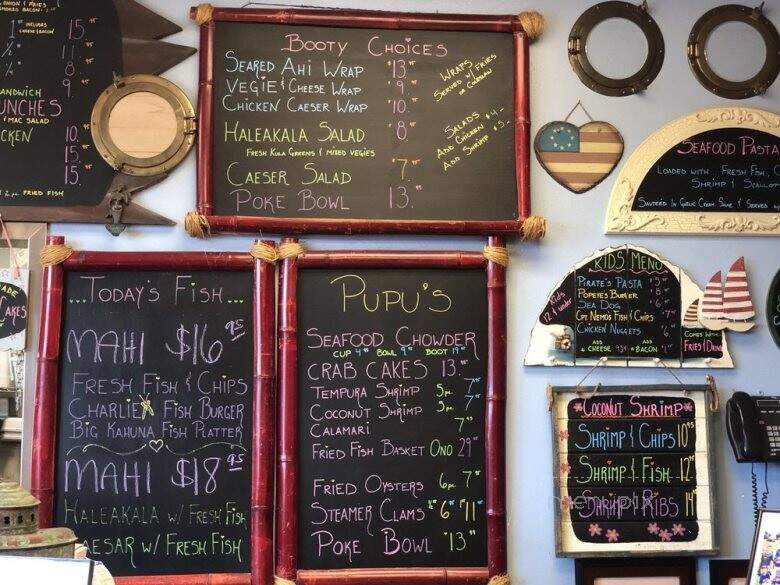 INCLUDES
CHEESE/BACON
15.
11.
8
9.
SANDWICH
& MAC SALAD
10.
15.
15.
FRIED FISH
BOOTY CHOICES
SEARED AHI WRAP 13.
VEGIE & CHEESE WRAP 9
CHICKEN CAESER WRAP 10.
HALEAKALA SALAD 8
FRESH KULA GREENS & MIXED VEGIES
CAESER SALAD 7.
POKE BOWL 13.
WRAPS
SERVED W/FRIES
OR COLESLAW
SALADS
ADD CHICKEN $4-
ADD SHRIMP $5-
SEAFOOD PASTA
LOADED WITH FRESH FISH,
SHRIMP & SCALLOP
SAUTÉ'D IN GARLIC CREAM SAUCE & SERVED
CAKES
...TODAY'S FISH...
MAHI $16 95
FRESH FISH & CHIPS
CHARLIE FISH BURGER
BIG KAHUNA FISH PLATTER
MAHI $18 95
HALEAKALA W/ FRESH FISH
CAESAR W/ FRESH FISH
PUPU'S
SEAFOOD CHOWDER
CUP BOWL BOOT
CRAB CAKES 13.
TEMPURA SHRIMP 5pc 7
COCONUT SHRIMP 5pc 7
CALAMARI 7
FRIED FISH BASKET ONO 29
FRIED OYSTERS 6pc 7
STEAMER CLAMS 6 11
POKE BOWL 13
KIDS MENU
Kids
12 & under
PIRATE'S PASTA
POPEYE'S BURGER
SEA DOG
CPT NEMO'S FISH & CHIPS
CHICKEN NUGGETS
ADD CHEESE
ADD BACON
COMES WITH
FRIES & DRINK
*COCONUT SHRIMP*
SHRIMP & CHIPS 10
SHRIMP & FISH 12
SHRIMP & RIBS 14